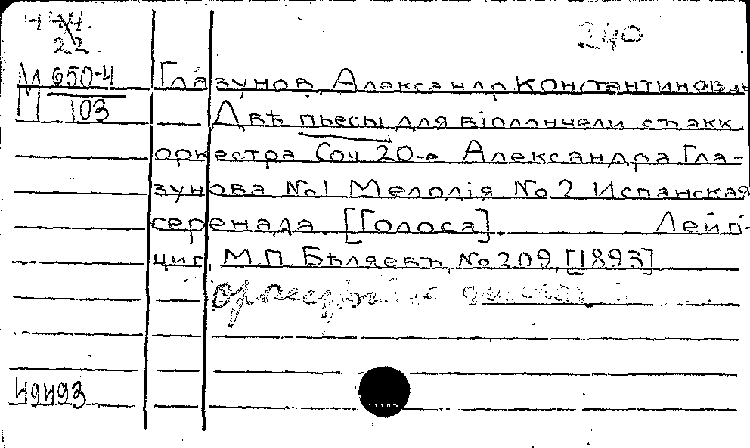 22.
240
М 650-4
М 103
Глазунов, Александр Константинович
Двѣ пьесы для віолончели съ акк.
оркестра Соч. 20-е Александра Гла-
зунова №1 Мелодія №2 Испанская
серенада. [Голоса]. Лейп-
циг, М.П. Бѣляевъ, №209, [1893]
49493